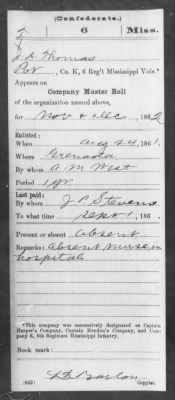 (Confederate.)
6 Miss.
Thomas
Pvt, Co. K, 6 Reg't Mississippi Vols.*
Appears on
Company Muster Roll
of the organization named above,
for Nov & Dec, 1862
Enlisted:
When Aug 24, 1861.
Where Grenada
By whom A M West
Period 1 yr
Last paid:
By whom J. P. Stevens
To what time Sept 1, 186
Present or absent Absent
Remarks: Absent nurse in
hospital
*This company was successively designated as Captain
Harper's Company, Captain Hendon's Company, and Com-
pany K, 6th Regiment Mississippi Infantry.
Book mark:
(642)
Copyist.